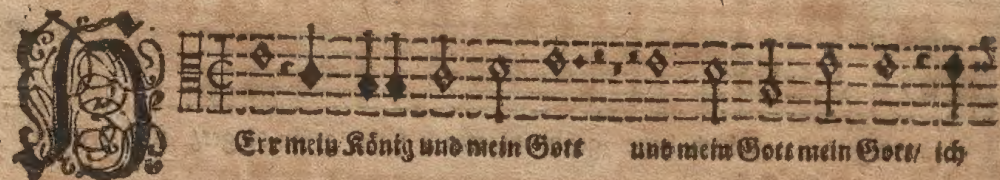 HErr mein König und mein Gott und mein Gott mein Gott/ ich